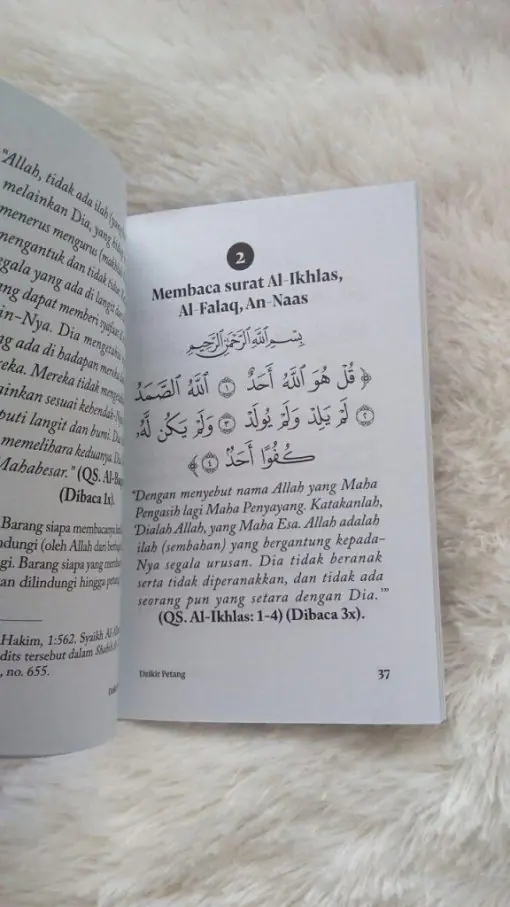 "Allah, tidak ada ilah
melainkan Dia, yang
menerus mengurus
mengantuk dan tidak
segala yang ada di langit dan
yang dapat memberi
in-Nya. Dia
ada di hadapan mereka
Mereka tidak
sesuai kehendak-
langit dan bumi.
memelihara keduanya.
Mahabesar." (QS.
(Dibaca 1x).
Barang siapa membacanya
(oleh Allah dari
Barang siapa yang
dilindungi hingga
Hakim, 1:562. Syaikh
tersebut dalam
, no. 655.
2
Membaca surat Al-Ikhlas,
Al-Falaq, An-Naas
بِسْمِ اللَّهِ الرَّحْمَٰنِ الرَّحِيمِ
﴿ قُلْ هُوَ اللَّهُ أَحَدٌ ۝١ اللَّهُ الصَّمَدُ
۝٢ لَمْ يَلِدْ وَلَمْ يُولَدْ ۝٣ وَلَمْ يَكُن لَّهُ
كُفُوًا أَحَدٌ ۝٤ ﴾
"Dengan menyebut nama Allah yang Maha
Pengasih lagi Maha Penyayang. Katakanlah,
'Dialah Allah, yang Maha Esa. Allah adalah
ilah (sembahan) yang bergantung kepada-
Nya segala urusan. Dia tidak beranak
serta tidak diperanakkan, dan tidak ada
seorang pun yang setara dengan Dia.'"
(QS. Al-Ikhlas: 1-4) (Dibaca 3x).
Dzikir Petang
37